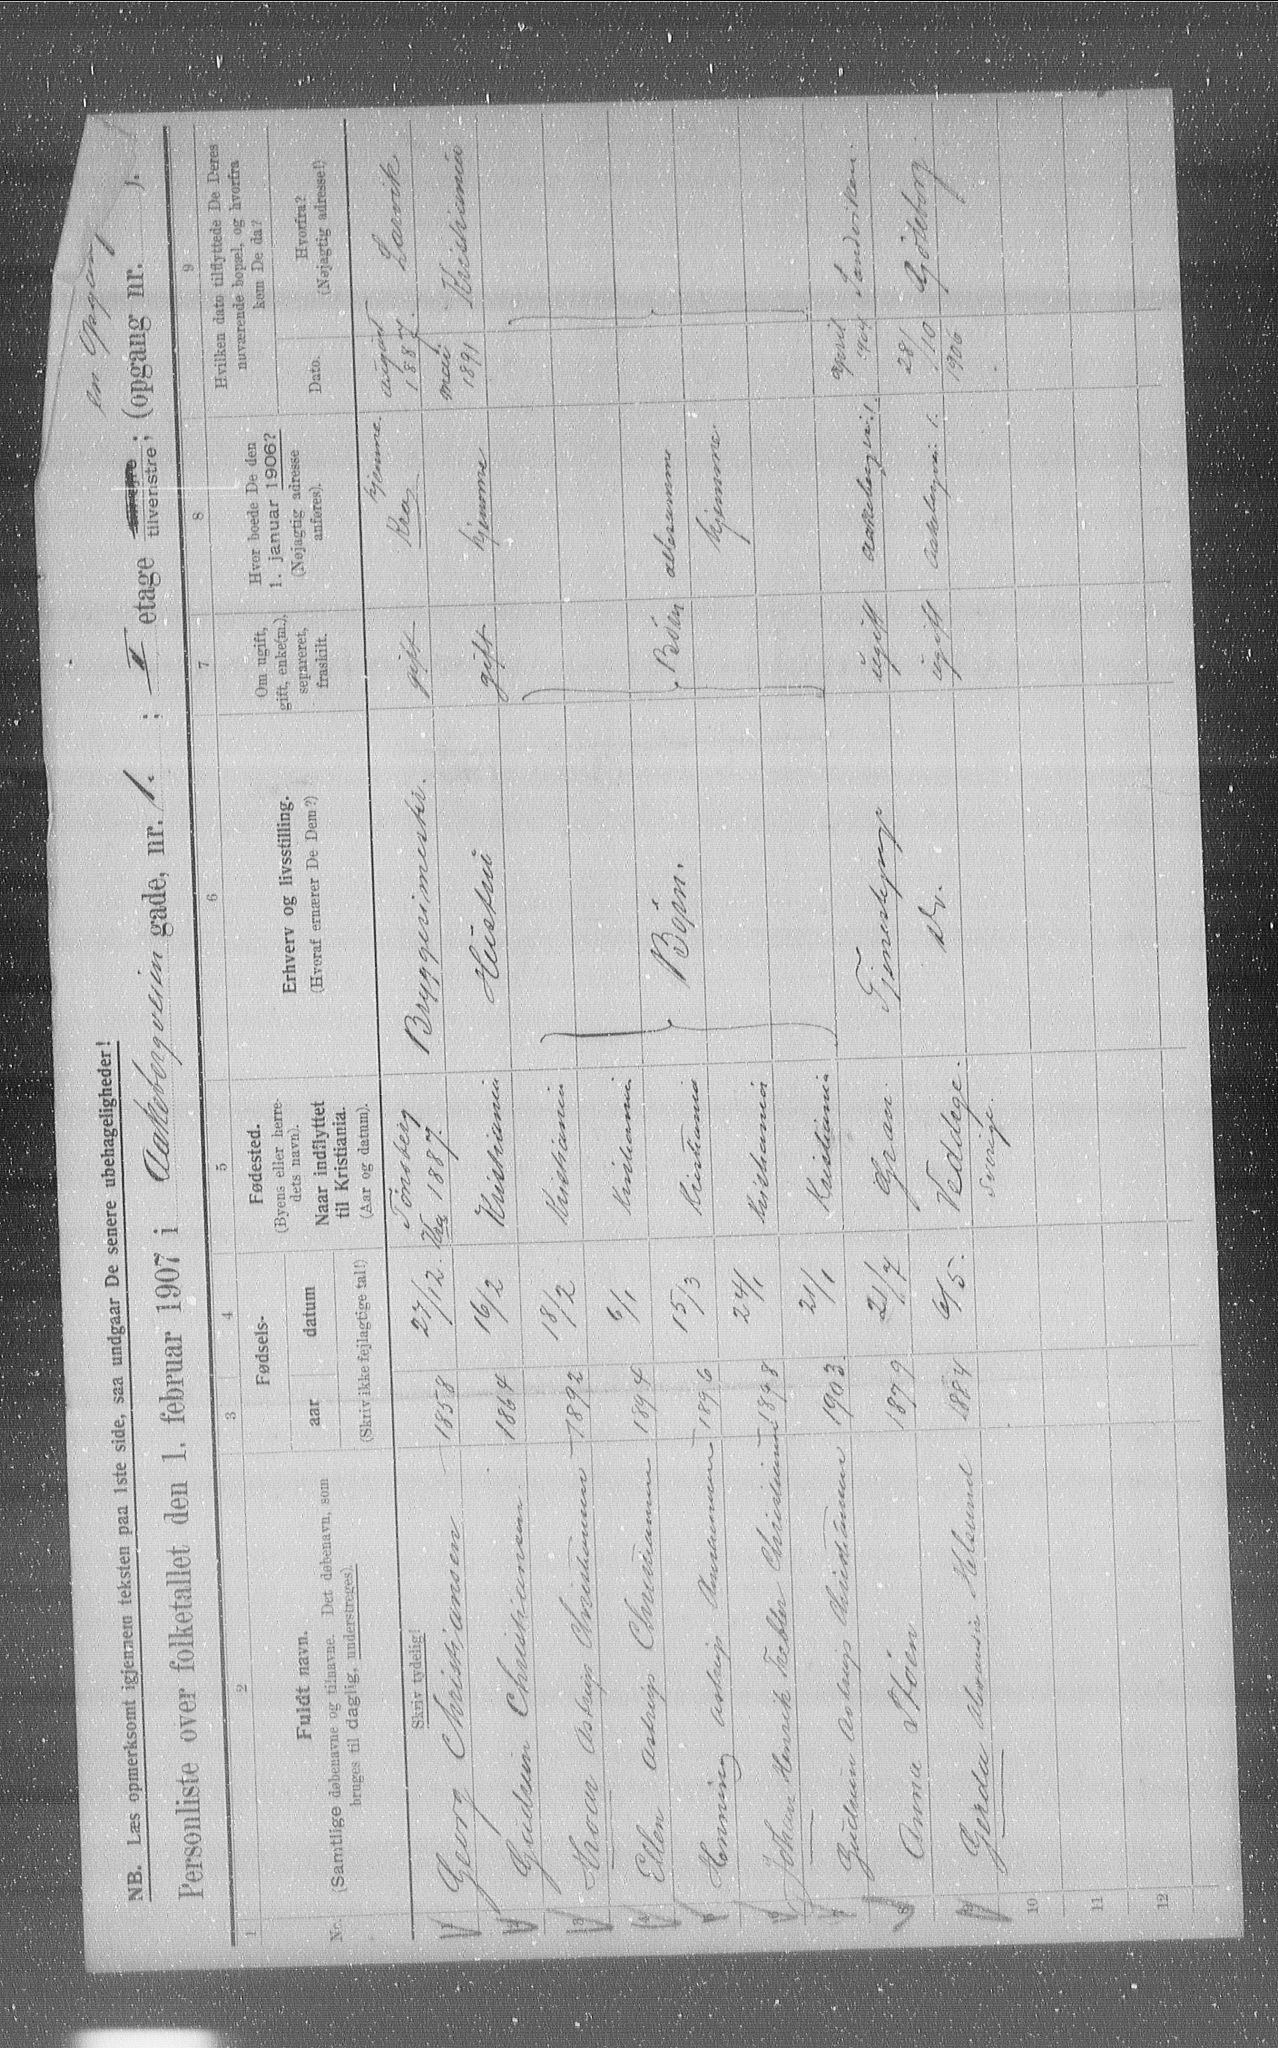 NB. Læs opmerksomt igjennem teksten paa 1ste side, saa undgaar De senere ubehageligheder!
Personliste over folketallet den 1. februar 1907 i Aakebergveien gade, nr. 1. ; II etage tilvenstre; (opgang nr. ).
en opgang
1 2 3 4 5 6 7 8 9
Nr. Fuldt navn.
(Samtlige døbenavne og tilnavne. Det døbenavn, som
bruges til daglig, understreges).
Fødsels-
aar datum
(Skriv ikke fejlagtige tal!)
Fødested.
(Byens eller herre-
dets navn).
Naar indflyttet
til Kristiania.
(Aar og datum).
Erhverv og livsstilling.
(Hvoraf ernærer De Dem?)
Om ugift,
gift, enke(m.),
separeret,
fraskilt.
Hvor boede De den
1. januar 1906?
(Nøjagtig adresse
anføres).
Hvilken dato tilflyttede De Deres
nuværende bopæl, og hvorfra
kom De da?
Dato. Hvorfra?
(Nøjagtig adresse!)
Skriv tydelig!
Georg Christiansen 1858 27/12. Tönsberg Kra 1887. Bryggerimester. gift Kra hjemme. august 1887. Larvik
Gudrun Christiansen 1864 16/2 Kristiania Hustru gift hjemme mai 1891 Kristiania
3 Astrup Christiansen 1892 18/2 Kristiania
Ellen Astrup Christiansen 1894 6/1 Kristiania
Henning Astrup Christiansen 1896 15/3 Kristiania Børn. Børn allesammen hjemme.
Johan Henrik Christiansen 1898 24/1 Kristiania
Gudrun Astrup Christiansen 1903. 21/1 Kristiania
8 Anna Støen 1879 21/7 Gran. Tjenestepige ugift Aakebergvei. 1. april 1904 Sandviken.
Gerda Helsund 1884 6/5. Veddige. Sverige. Do. ugift Aakebergvei. 1. 28/10 1906 Göteborg.
10
11
12